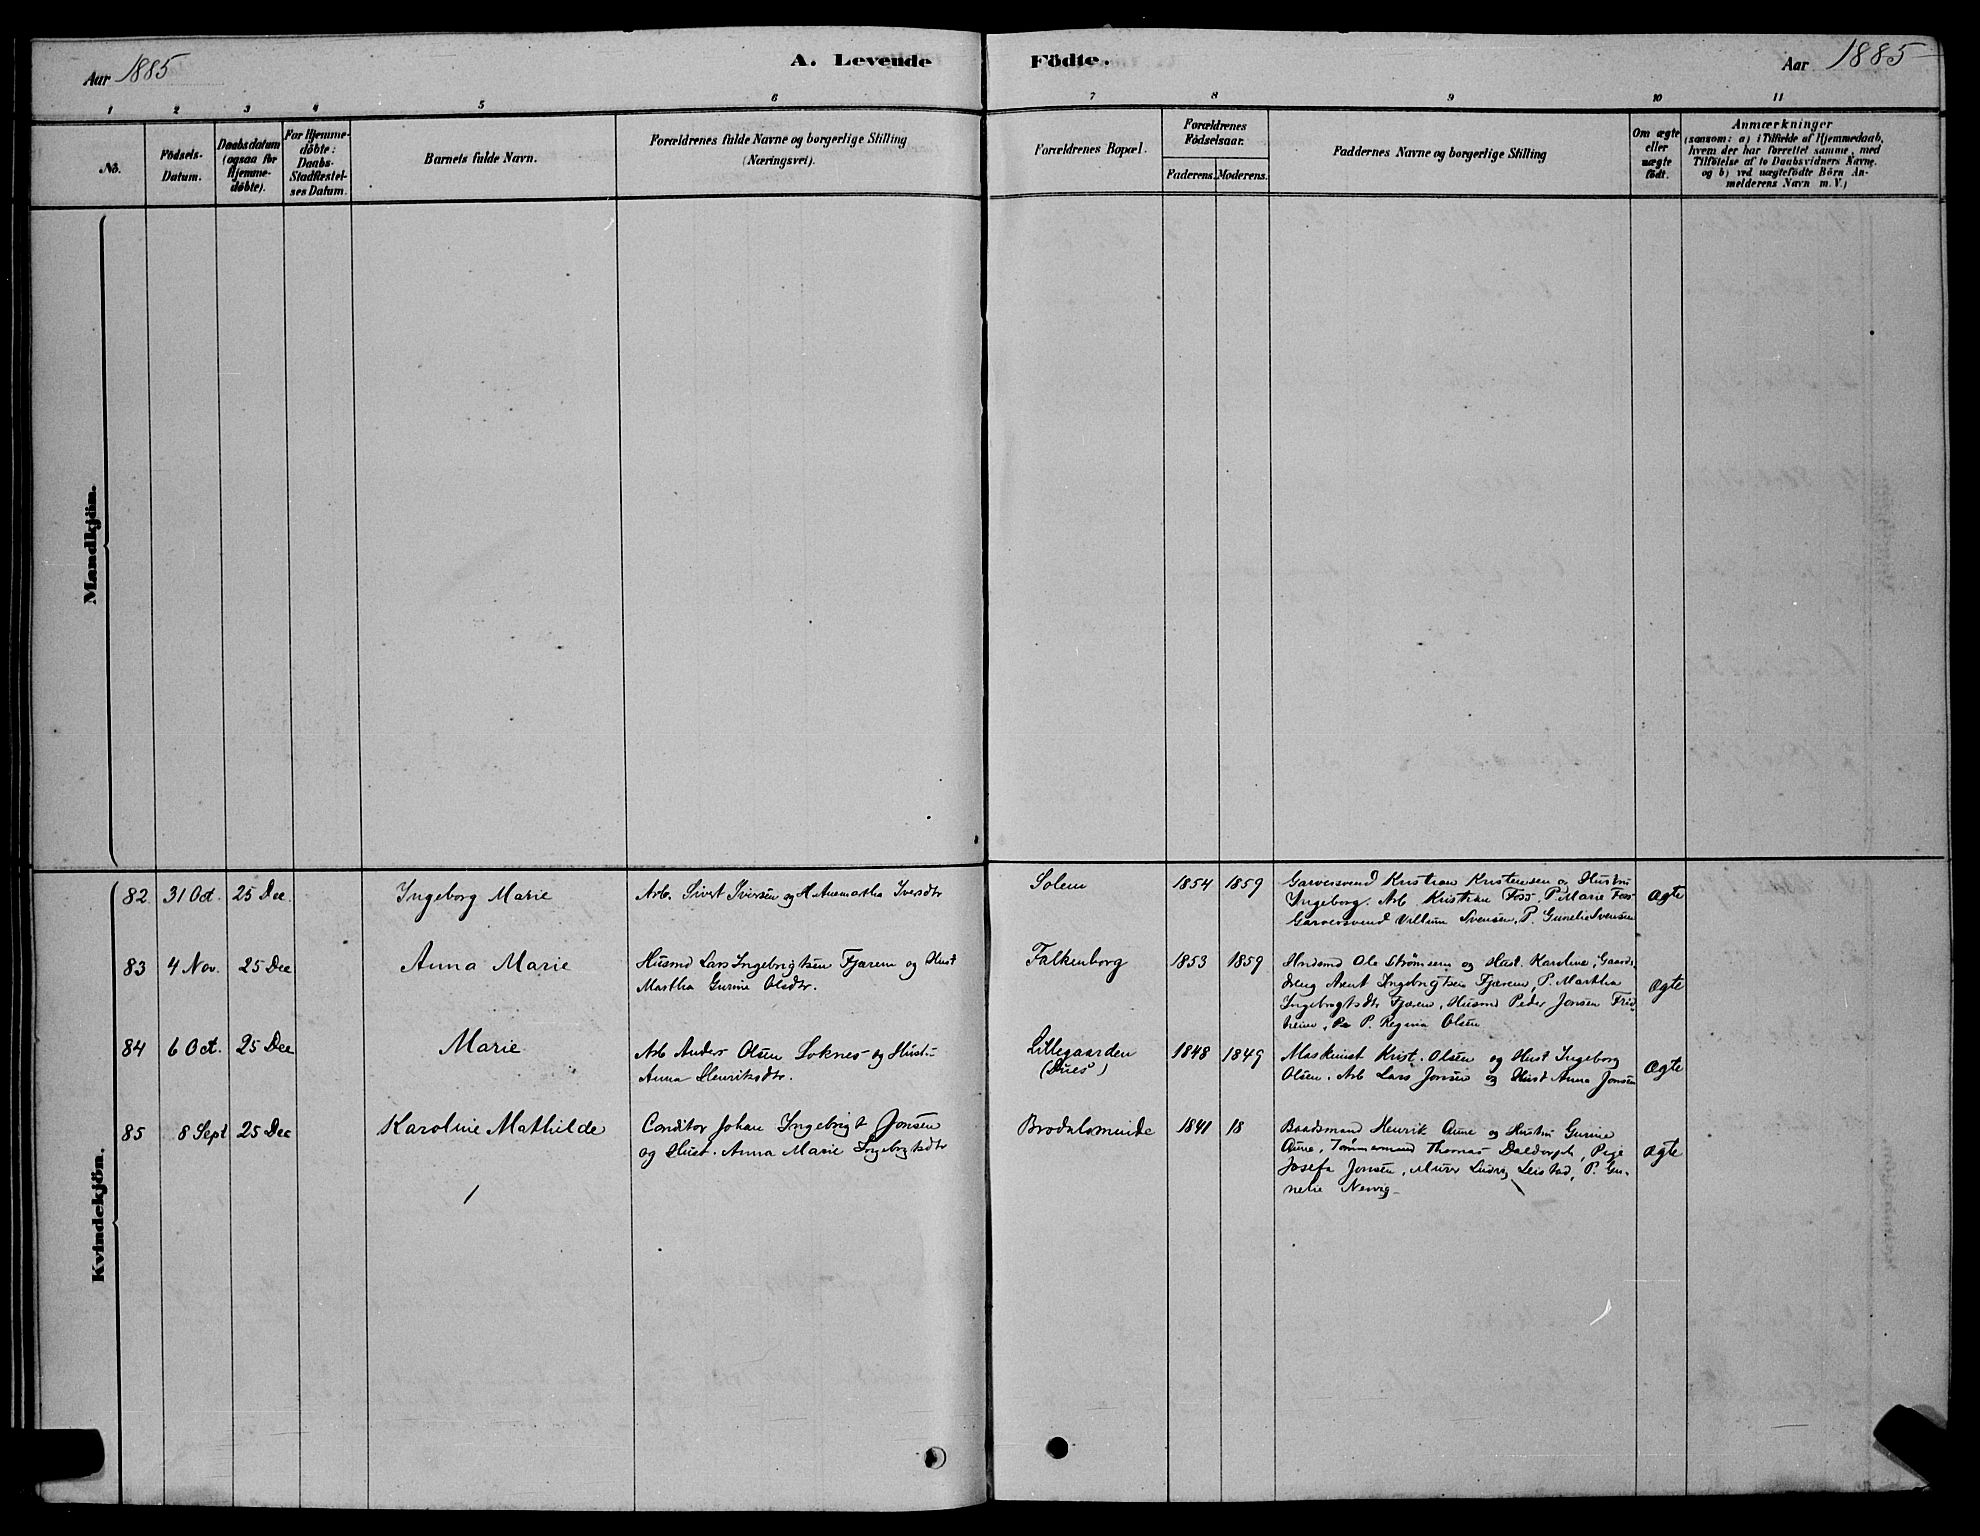 Aar 1885
A. Levende Födte.
Aar 1885
1 2 3 4 5 6 7 8 9 10 11
No.
Födsels-
Datum.
Daabsdatum
(ogsaa for
Hjemme-
döbte).
For Hjemme-
döbte:
Daabs-
Stadfæstel-
ses Datum.
Barnets fulde Navn.
Forældrenes fulde Navne og borgerlige Stilling
(Næringsvei).
Forældrenes Bopæl.
Forældrenes
Födselsaar.
Faderens. Moderens.
Faddernes Navne og borgerlige Stilling
Om ægte
eller
uægte
födt.
Anmærkninger
(saasom: a) i Tilfælde af Hjemmedaab,
hvem der har forrettet samme, med
Tilföielse af to Daabsvidners Navne.
og b) ved uægtefödte Börn An-
melderens Navn m. V.)
Mandkjön.
Kvindekjön.
82 31 Oct. 25 Dec.
Ingeborg Marie
Arb. Sivert Iversen og H. Annemartha Iversdtr
Solem
1854 1859
Garversvend Kristian Kristensen og Hustru
Ingeborg. Arb. Kristian Foss. P. Marie Foss
Garversvend Villum Svensen, P. Gunelie Svensen
ægte
83 4 Nov. 25 Dec
Anna Marie
Husmd Lars Ingebrigtsen Fjærem og Hust
Martha Gurine Olsdtr.
Falkenborg
1853 1859
Husmd Ole Strømsem og Hust. Karoline, Gaard-
Arent Ingebrigtsen Fjærem, P. Martha
Ingebrigtsdtr Fjærem, Husmd Peder Jonsen Frid-
heim, P. Regina Olsen
ægte
84 6 Oct. 25 Dec
Marie
Arb Anders Olsen Loknes og Hust.
Anna Henriksdtr.
Lillegaarden
1848 1849
Maskinist Krist. Olsen og Hust Ingeborg
Olsen. Arb Lars Jonsen og Hust Anna Jonsen
ægte
85 8 Sept 25 Dec
Karoline Mathilde
Conditor Johan Ingebrigt Jonsen
og Hust. Anna Marie Ingebrigtsdtr
Brodalsminde
1841 18
Baadsmand Henrik Aune og Hustru Gurine
Aune, Tømmermand Thomas Daldorph, Pige
Josefa Jonsen, Murer Ludvig Leistad, P. Gu-
nelie Nervig
ægte